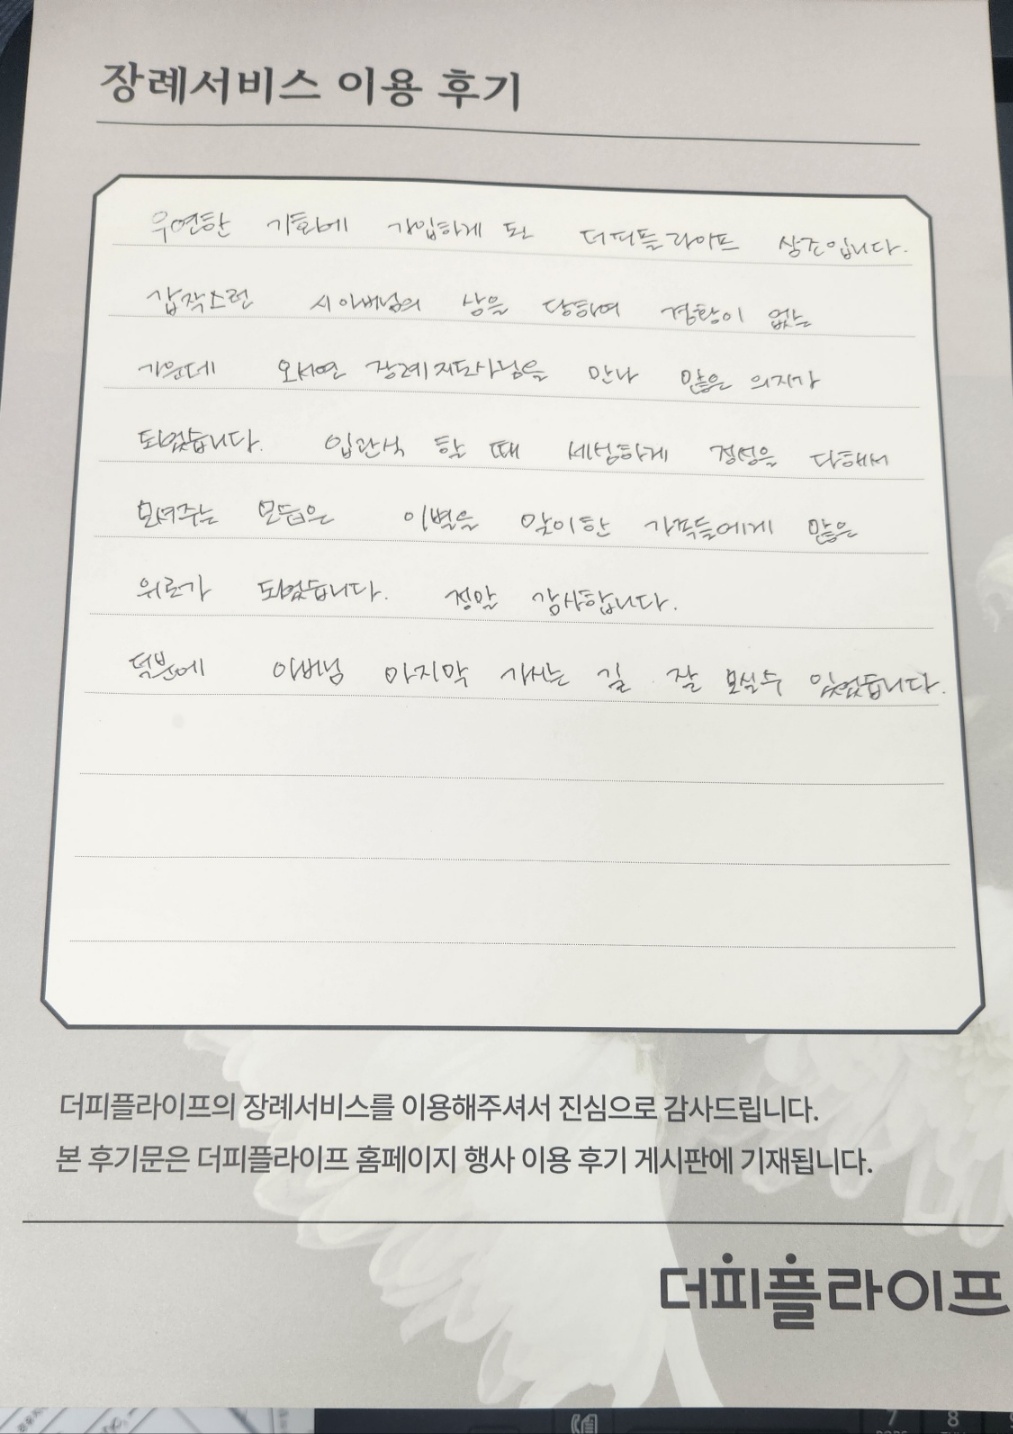 장례서비스 이용 후기
우연한 기회에 가입하게 된 더피플라이프 상조입니다.
갑작스런 시아버님의 상을 당하여 경황이 없는
가운데 오서연 장례지도사님을 만나 많은 의지가
되었습니다. 입관식 할 때 세심하게 정성을 다해서
모여주는 모습은 이별을 맞이한 가족들에게 많은
위로가 되었습니다. 정말 감사합니다.
덕분에 아버님 마지막 가시는 길 잘 모실수 있었습니다.
더피플라이프의 장례서비스를 이용해주셔서 진심으로 감사드립니다.
본 후기문은 더피플라이프 홈페이지 행사 이용 후기 게시판에 기재됩니다.
더피플라이프
7 8